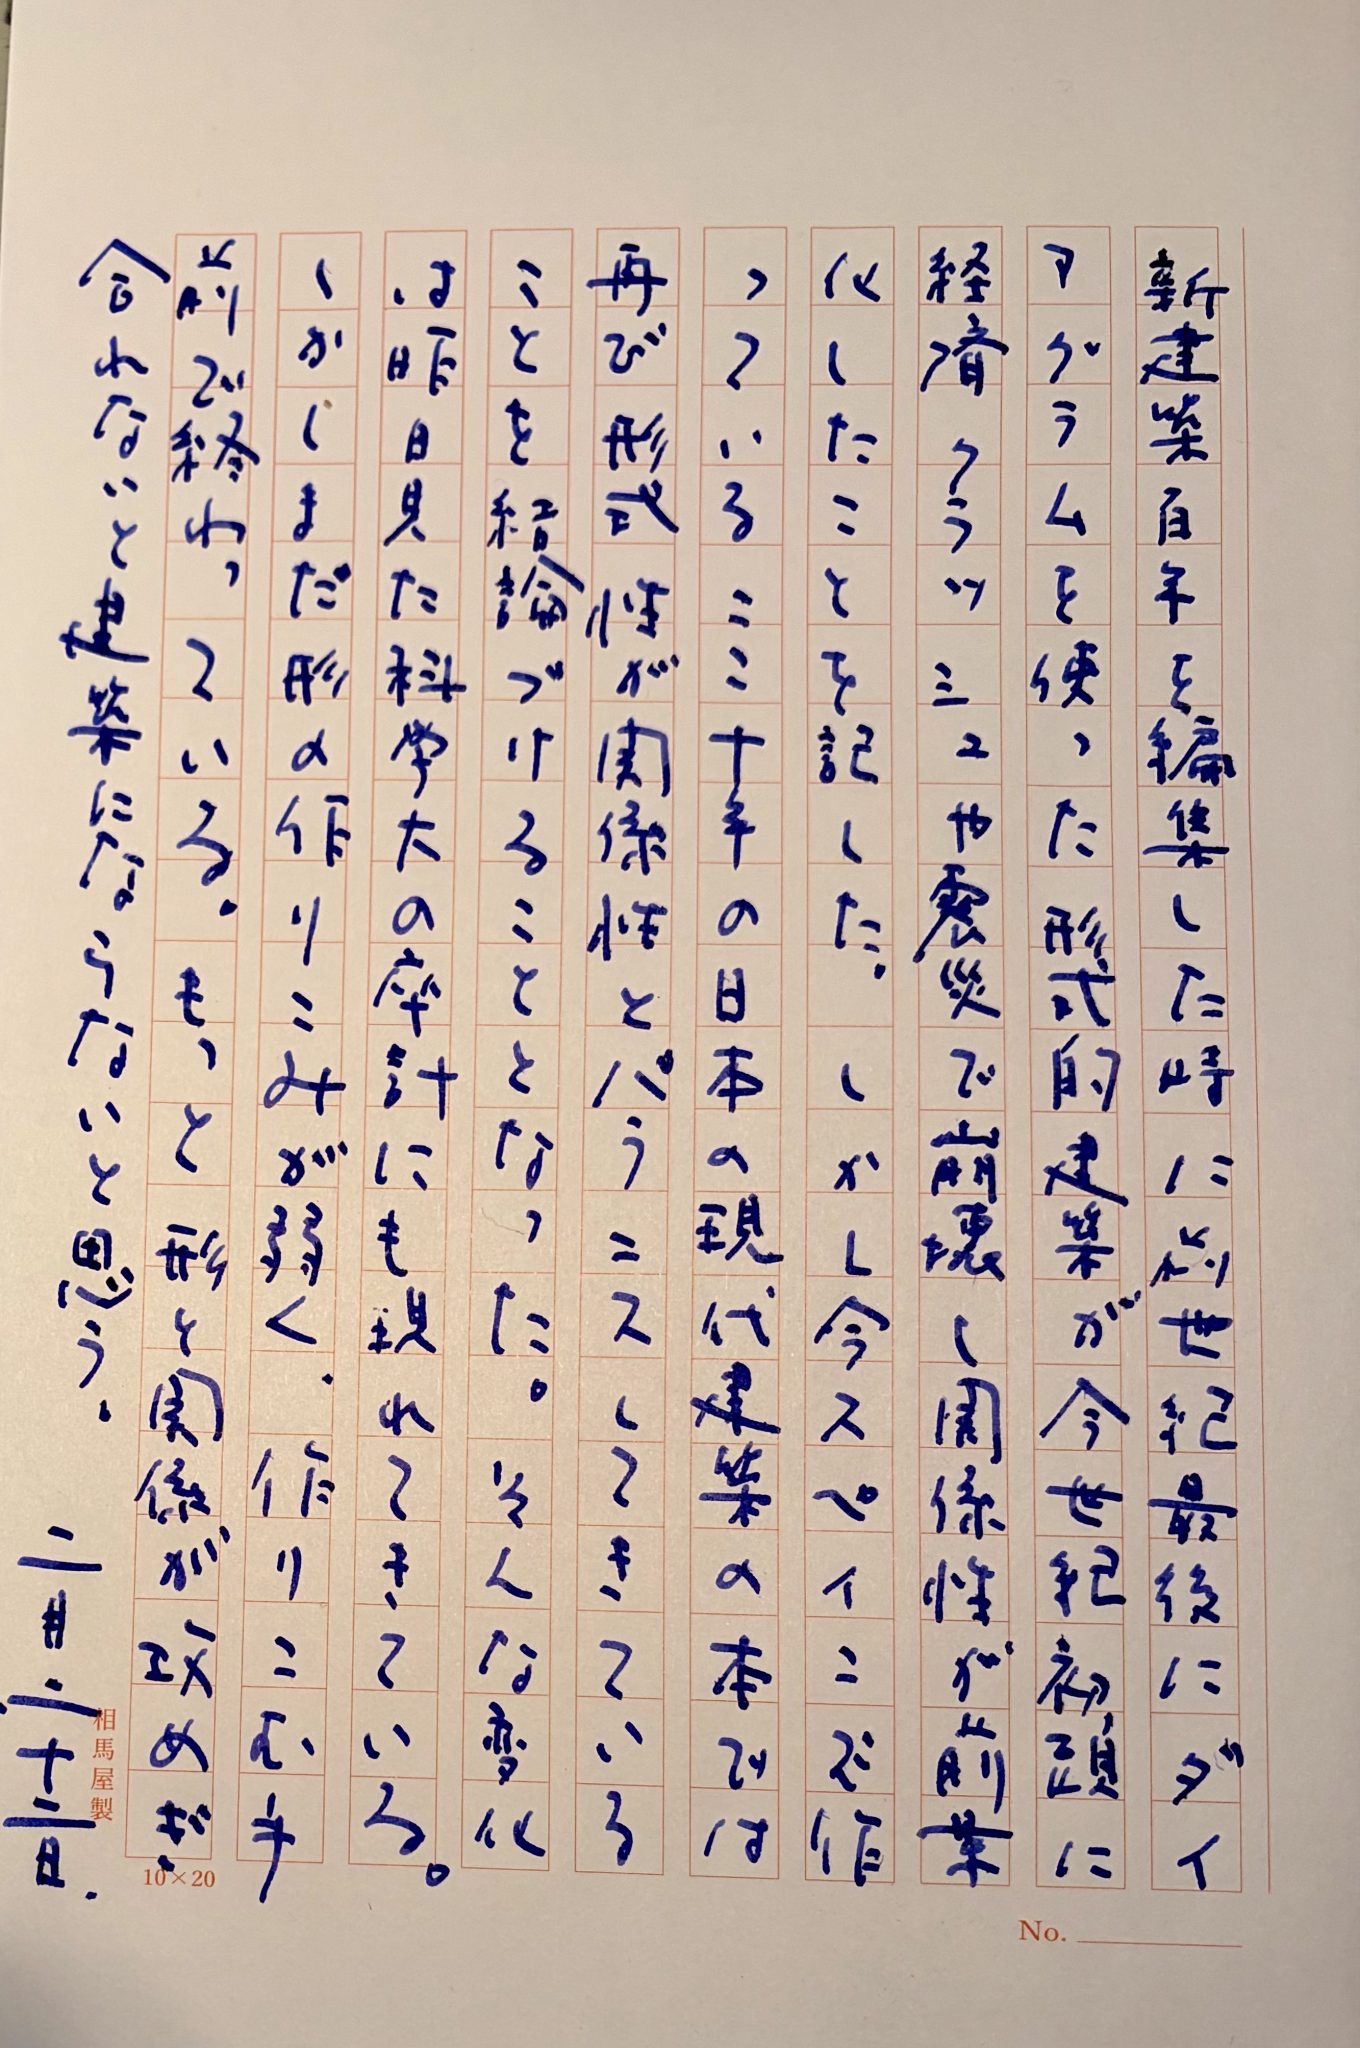 新建築百年を編集した時に前世紀最後にダイ
アグラムを使った形式的建築が今世紀初頭に
経済クラッシュや震災で崩壊し関係性が前葉
化したことを記した。しかし今スペイコで作
っているここ十年の日本の現代建築の本では
再び形式性が関係性とバランスしてきている
ことを結論づけることとなった。そんな変化
は昨日見た科学大の卒計にも現れてきている。
しかしまだ形の作りこみが弱く、作りこむ手
前で終わっている。もっと形と関係がせめぎ
合わないと建築にならないと思う。
二月二十二日.
相馬屋製
10×20
No.